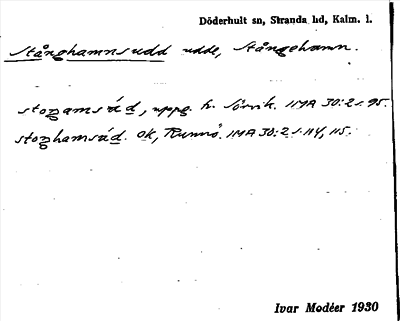 Döderhult sn, Stranda hd, Kalm. l.
Stånghamnsudd udde, Stångehamn.
stoŋamsúd, uppg. h. Sörvik. IMA 30:2 s. 95.
stoŋhamsúd. ok, Runnö. IMA 30:2 s. 114, 115.
Ivar Modéer 1930